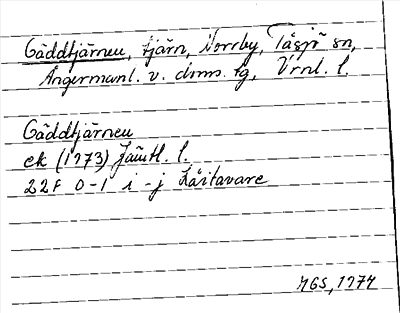 Gäddtjärnen, tjärn, Norrby, Tåsjö sn,
Ångermanl. v. doms. tg, Vrnl. l.
Gäddtjärnen
ek (1973) Jämtl. l.
22F 0-1 i-j Råitavare
MGS, 1974